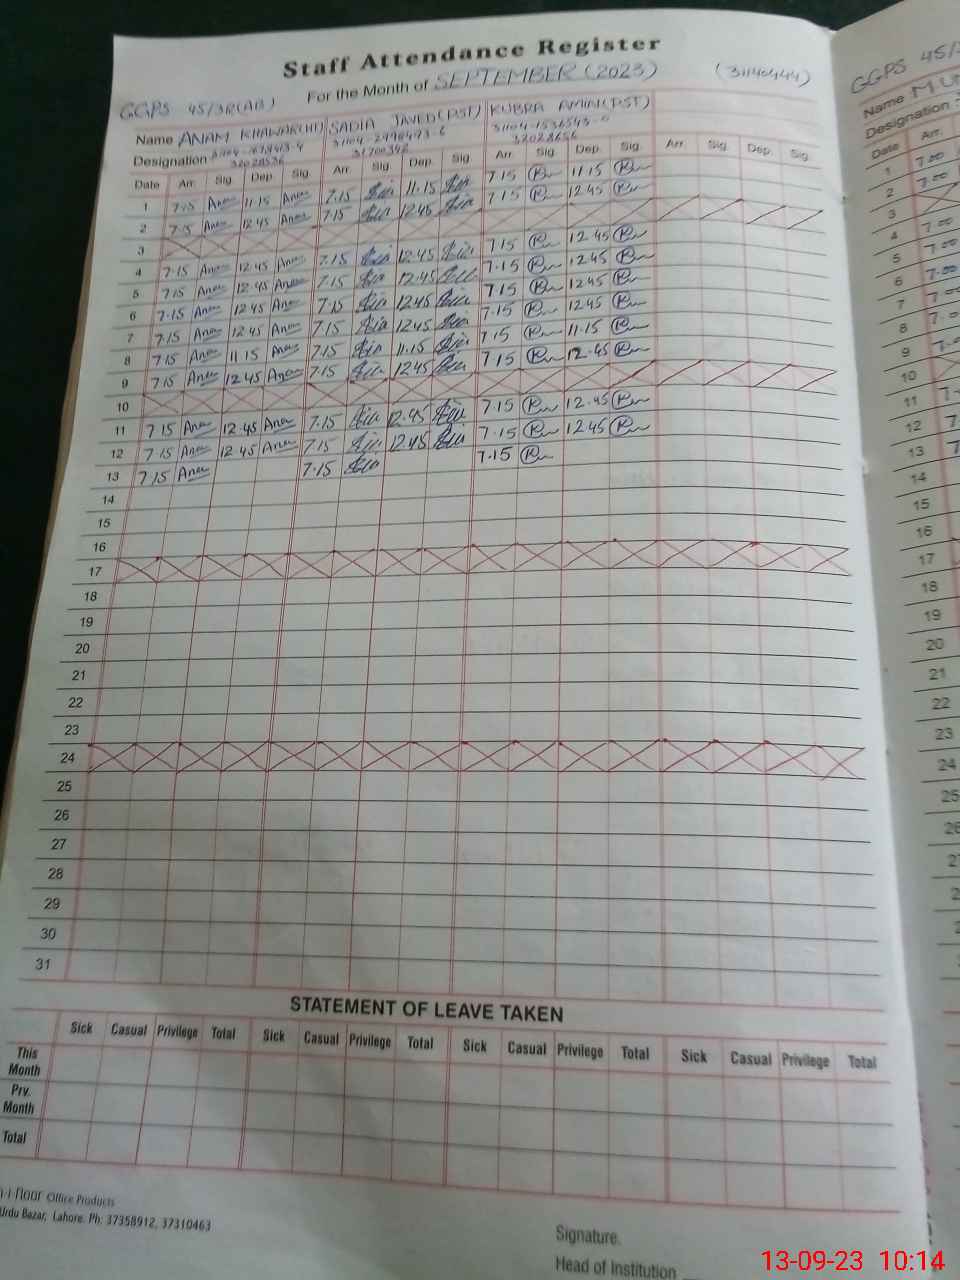 Staff Attendance Register
For the Month of SEPTEMBER (2023) (31140444)
GGPS 45/3R(AB)
Name ANAM KHAWAR(HT) SADIA JAVED(PST) KUBRA AMIN(PST)
Designation 31104-2998493-6 31104-1536543-0
32028536 31700342 32028656
Date Arr. Sig. Dep. Sig. Arr. Sig. Dep. Sig. Arr. Sig. Dep. Sig. Arr. Sig. Dep. Sig.
1 7.15 Anam 11.15 Anam 7.15 Sadia 11.15 Sadia 7.15 11.15
2 7.15 Anam 12.45 Anam 7.15 Sadia 12.45 Sadia 7.15 12.45
3
4 7.15 Anam 12.45 Anam 7.15 Sadia 12.45 Sadia 7.15 12.45
5 7.15 Anam 12.45 Anam 7.15 Sadia 12.45 Sadia 7.15 12.45
6 7.15 Anam 12.45 Anam 7.15 Sadia 12.45 Sadia 7.15 12.45
7 7.15 Anam 12.45 Anam 7.15 Sadia 12.45 Sadia 7.15 12.45
8 7.15 Anam 11.15 Anam 7.15 Sadia 11.15 Sadia 7.15 11.15
9 7.15 Anam 12.45 Anam 7.15 Sadia 12.45 Sadia 7.15 12.45
10
11 7.15 Anam 12.45 Anam 7.15 Sadia 12.45 Sadia 7.15 12.45
12 7.15 Anam 12.45 Anam 7.15 Sadia 12.45 Sadia 7.15 12.45
13 7.15 Anam 7.15 Sadia 7.15
14
15
16
17
18
19
20
21
22
23
24
25
26
27
28
29
30
31
STATEMENT OF LEAVE TAKEN
Sick Casual Privilege Total Sick Casual Privilege Total Sick Casual Privilege Total Sick Casual Privilege Total
This Month
Prv. Month
Total
Office Products
Urdu Bazar, Lahore. Ph: 37358912, 37310463
Signature.
Head of Institution
GGPS 45/3
Name
Designation
Date Arr.
1 7.00
2 7.00
3
4 7.00
5 7.00
6 7.00
7 7.00
8 7.0
9 7.0
10
11 7
12 7
13 7
14
15
16
17
18
19
20
21
22
23
24
25
26
13-09-23 10:14